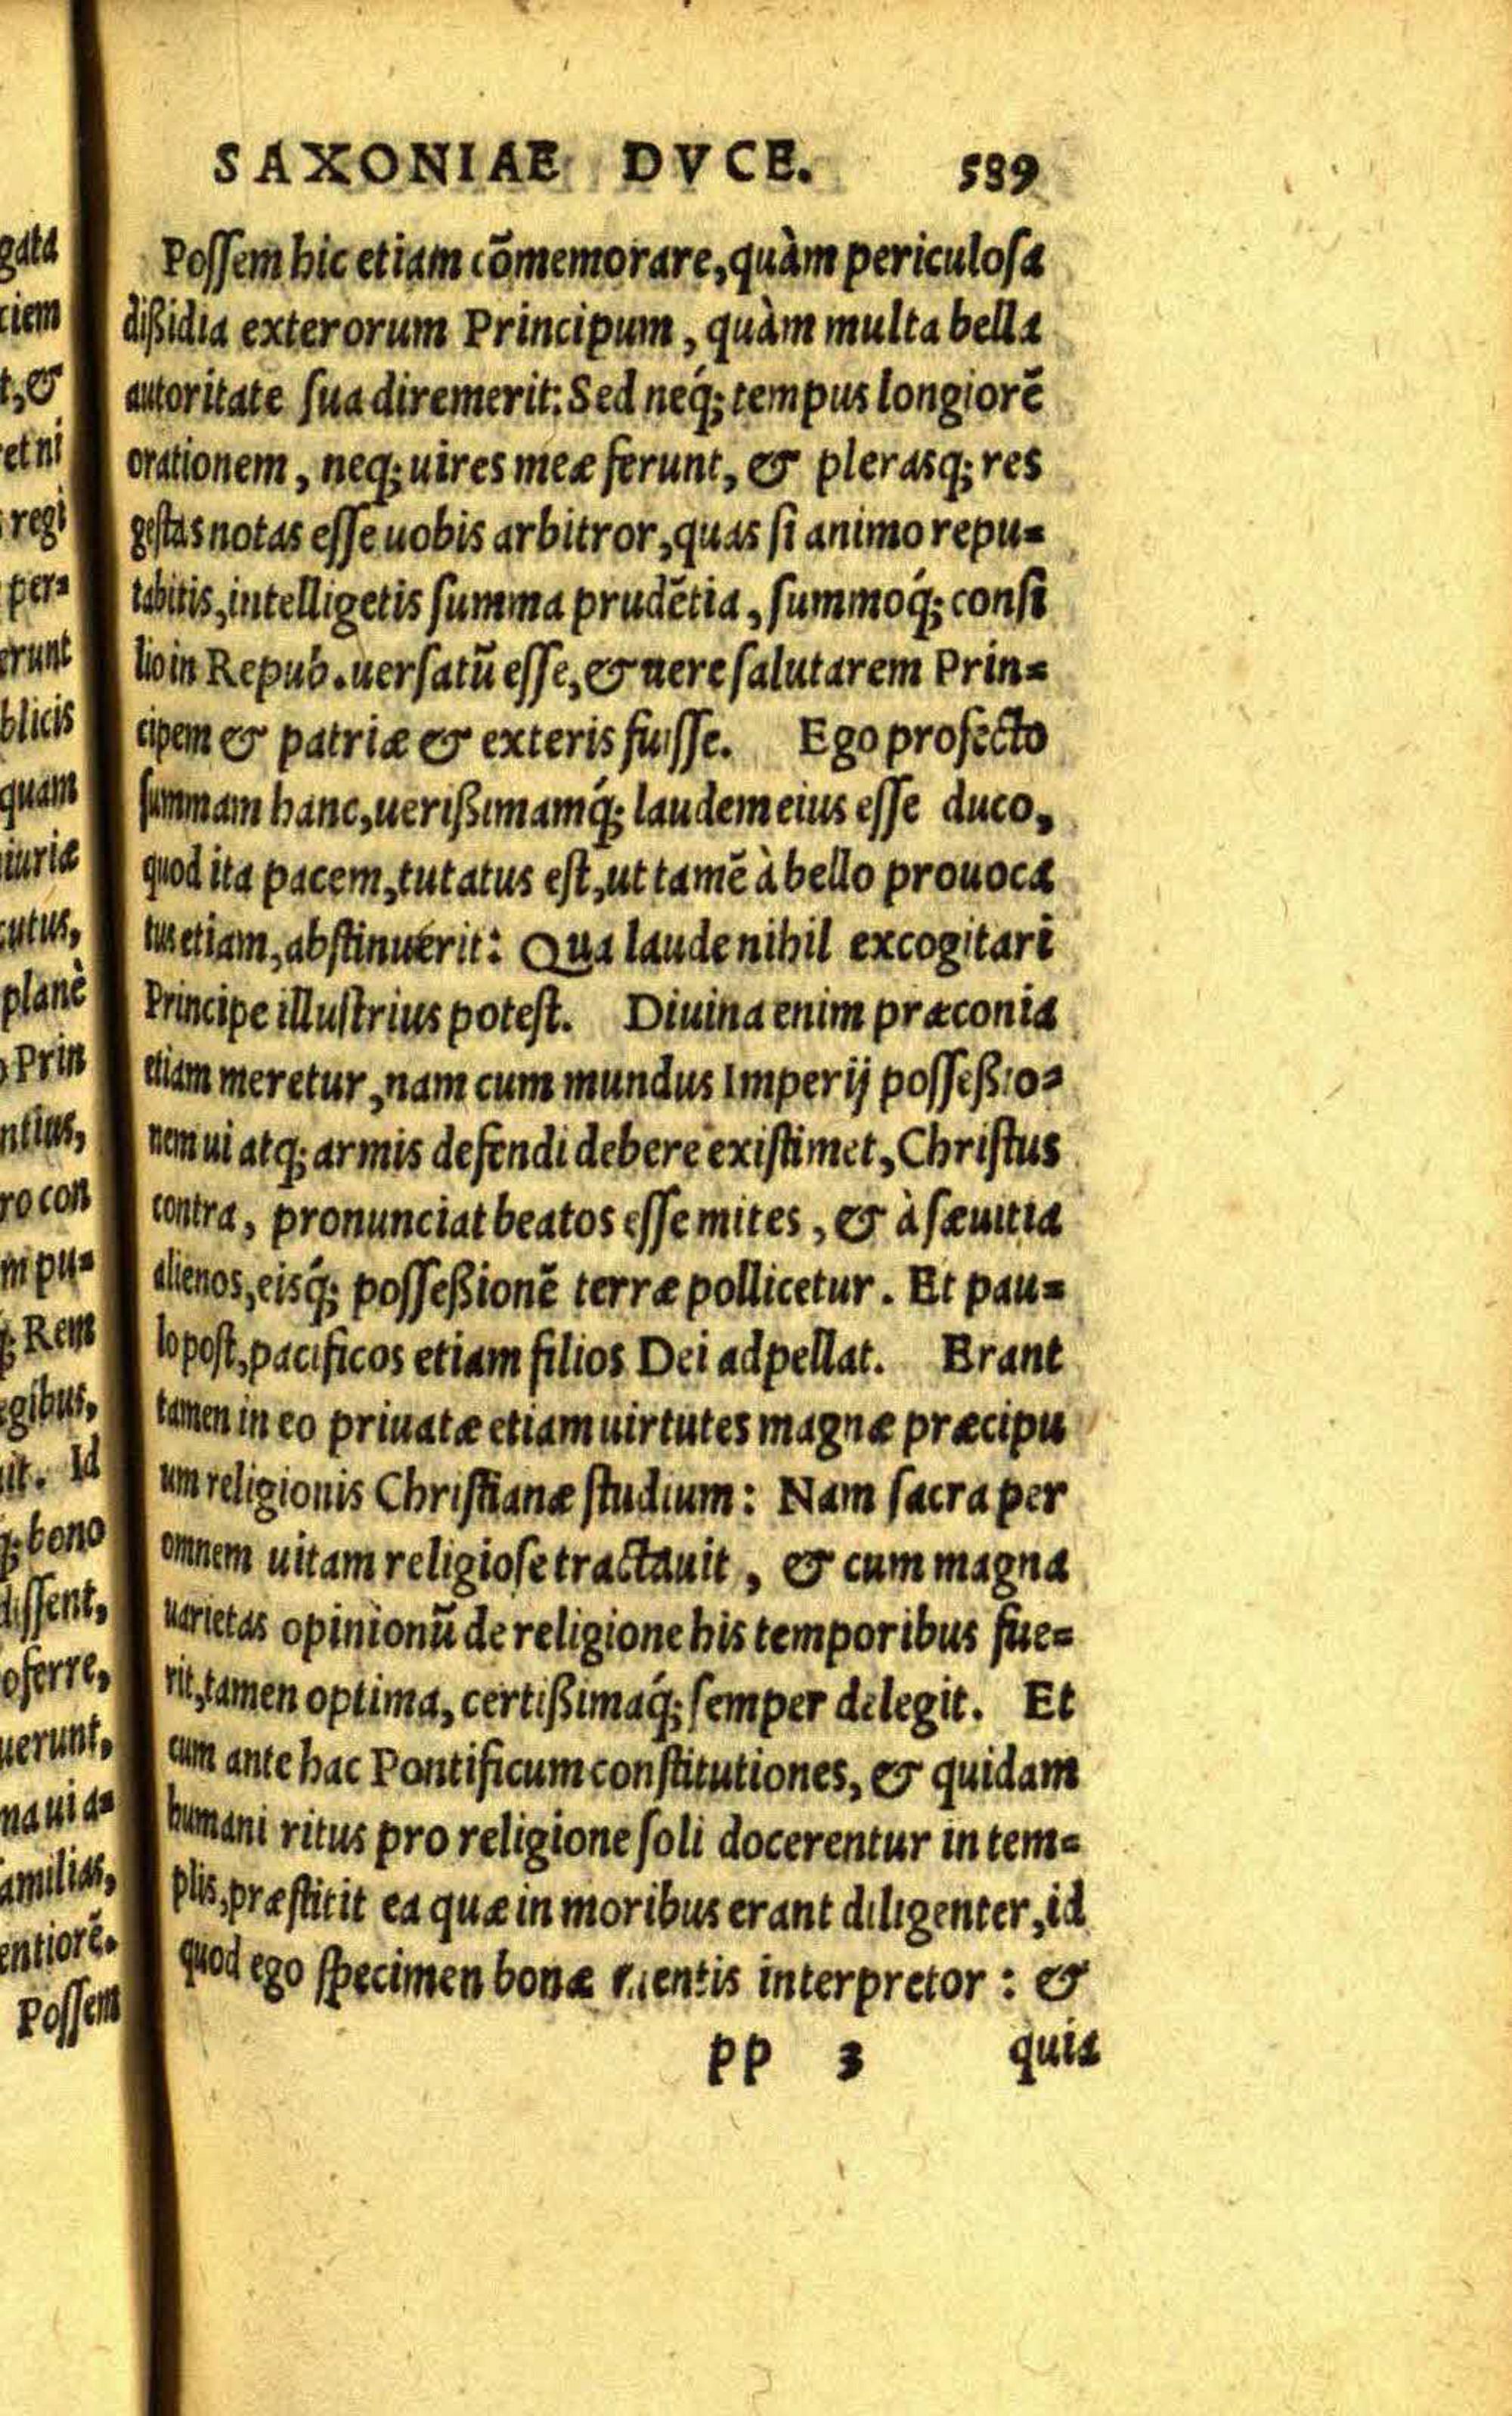 SAXONIAE DVCE. 589
Possem hic etiam cõmemorare, quàm periculosa
dißidia exterorum Principum, quàm multa bella
autoritate sua diremerit: Sed neq́; tempus longiorẽ
orationem, neq; uires meæ ferunt, & plerasq; res
gestas notas esse uobis arbitror, quas si animo repu-
tabitis, intelligetis summa prudẽtia, summoq́; consi
lio in Repub. uersatũ esse, & uere salutarem Prin-
cipem & patriæ & exteris fuisse. Ego profecto
summam hanc, uerißimamq́; laudem eius esse duco,
quod ita pacem, tutatus est, ut tamẽ à bello prouoca
tus etiam, abstinuerit: Qua laude nihil excogitari
Principe illustrius potest. Diuina enim præconia
etiam meretur, nam cum mundus Imperij posseßio-
nem ui atq; armis defendi debere existimet, Christus
contra, pronunciat beatos esse mites, & à sæuitia
alienos, eisq́; posseßionẽ terræ pollicetur. Et pau-
lo post, pacificos etiam filios Dei adpellat. Erant
tamen in eo priuatæ etiam uirtutes magnæ præcipu
um religionis Christianæ studium: Nam sacra per
omnem uitam religiose tractauit, & cum magna
uarietas opinionũ de religione his temporibus fue-
rit, tamen optima, certißimaq́; semper delegit. Et
cum ante hac Pontificum constitutiones, & quidam
humani ritus pro religione soli docerentur in tem-
plis, præstitit ea quæ in moribus erant diligenter, id
quod ego specimen bonæ mentis interpretor: &
pp 3 quia
gata
ciem
t, &
et ni
regi
per-
erunt
blicis
quam
iuriæ
cutus,
planè
Prin
ntius,
ro con
m pu-
q; Rem
egibus,
it. Id
q; bono
dissent,
oferre,
uerunt,
na ui a-
amilias,
entiorẽ.
Possem